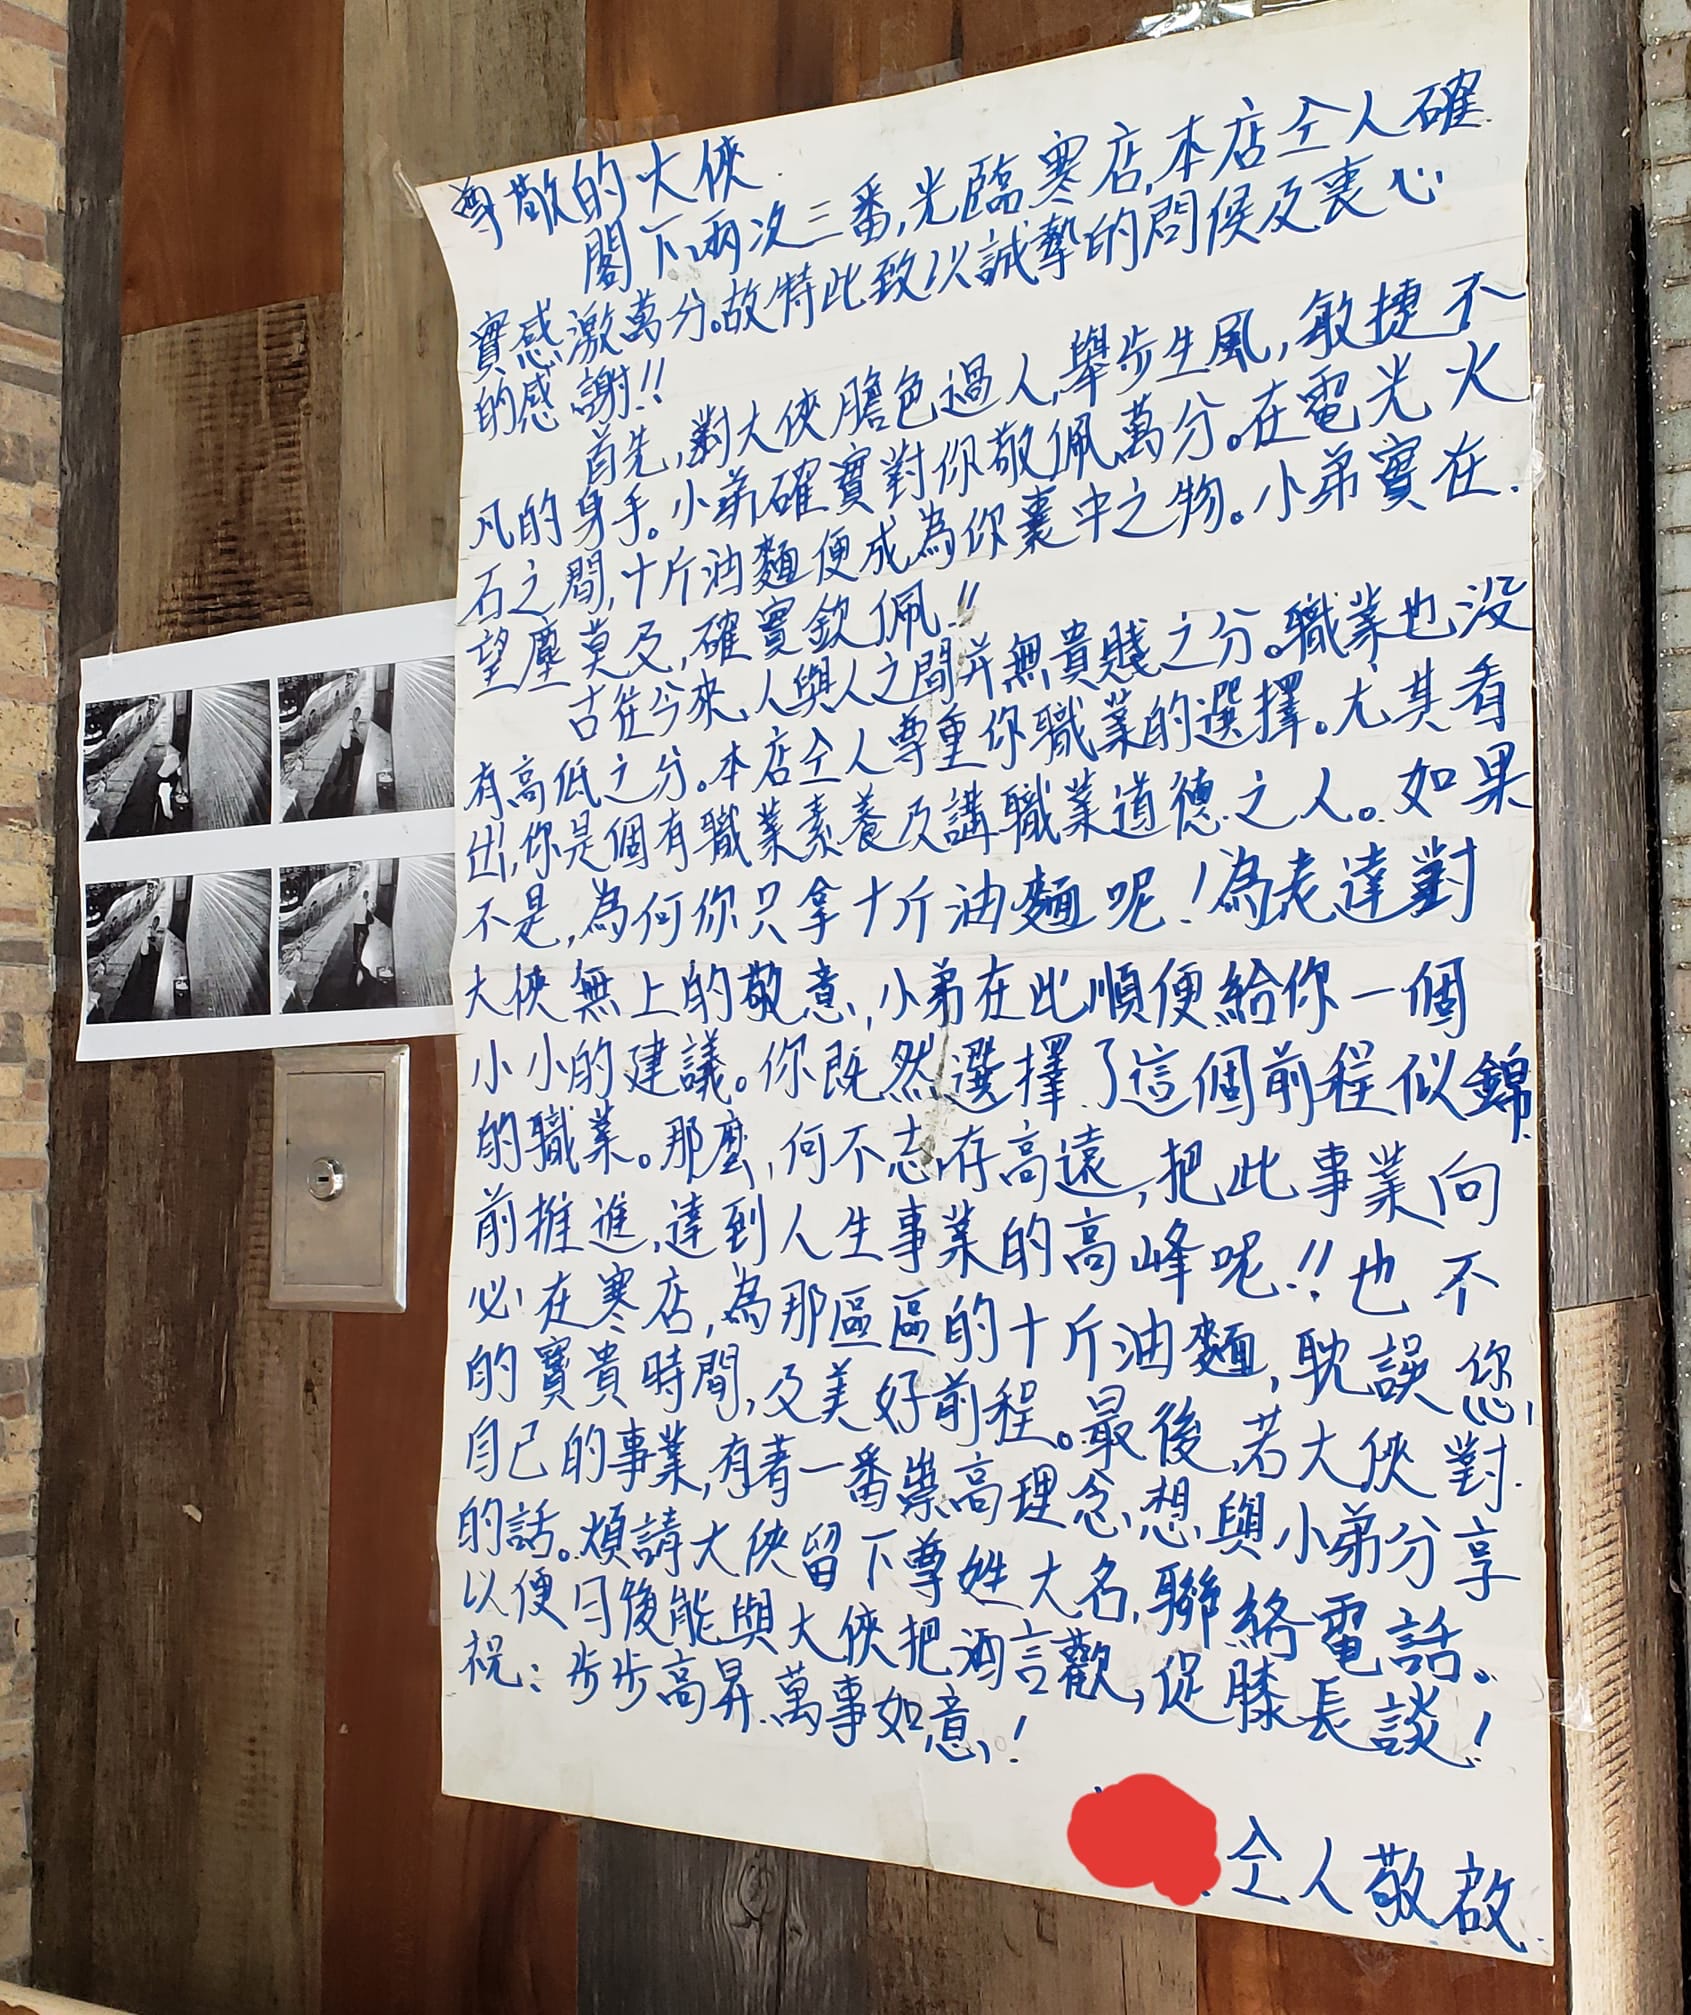 尊敬的大俠
閣下兩次三番,光臨寒店,本店仝人確
實感激萬分。故特此致以誠摯的問候及衷心
的感謝!!
首先,對大俠膽色過人,舉步生風,敏捷不
凡的身手。小弟確實對你敬佩萬分。在電光火
石之間,十斤油麵便成為你囊中之物。小弟實在
望塵莫及,確實欽佩!!
古往今來,人與人之間并無貴賤之分。職業也没
有高低之分。本店仝人尊重你職業的選擇。尤其看
出,你是個有職業素養及講職業道德之人。如果
不是,為何你只拿十斤油麵呢!為表達對
大俠無上的敬意,小弟在此順便給你一個
小小的建議。你既然選擇了這個前程似錦
的職業。那麼,何不志存高遠,把此事業向
前推進,達到人生事業的高峰呢!!也不
必在寒店,為那區區的十斤油麵,耽誤您
的寶貴時間,及美好前程。最後,若大俠對
自己的事業,有著一番崇高理念,想與小弟分享
的話。煩請大俠留下尊姓大名,聯絡電話。
以便日後能與大俠把酒言歡,促膝長談!
祝:步步高昇.萬事如意!
仝人敬啟